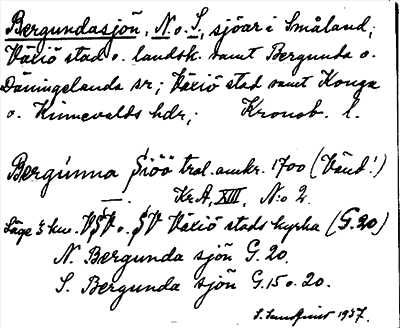 Bergundasjön, N. o. S., sjöar i Småland;
Växiö stad o. landsk. samt Bergunda o.
Däningelanda sr; Växiö stad samt Konga
o. Kinnevalds hdr; Kronob. l.
Bergunna Siöö tral. omkr. 1700 (Vänd!)
— KrA, XIII, No 2.
Läge 3 km. VSV o. SV Växiö stads kyrka (G.20)
N. Bergunda sjön G.20.
S. Bergunda sjön G.15 o. 20.
1937.